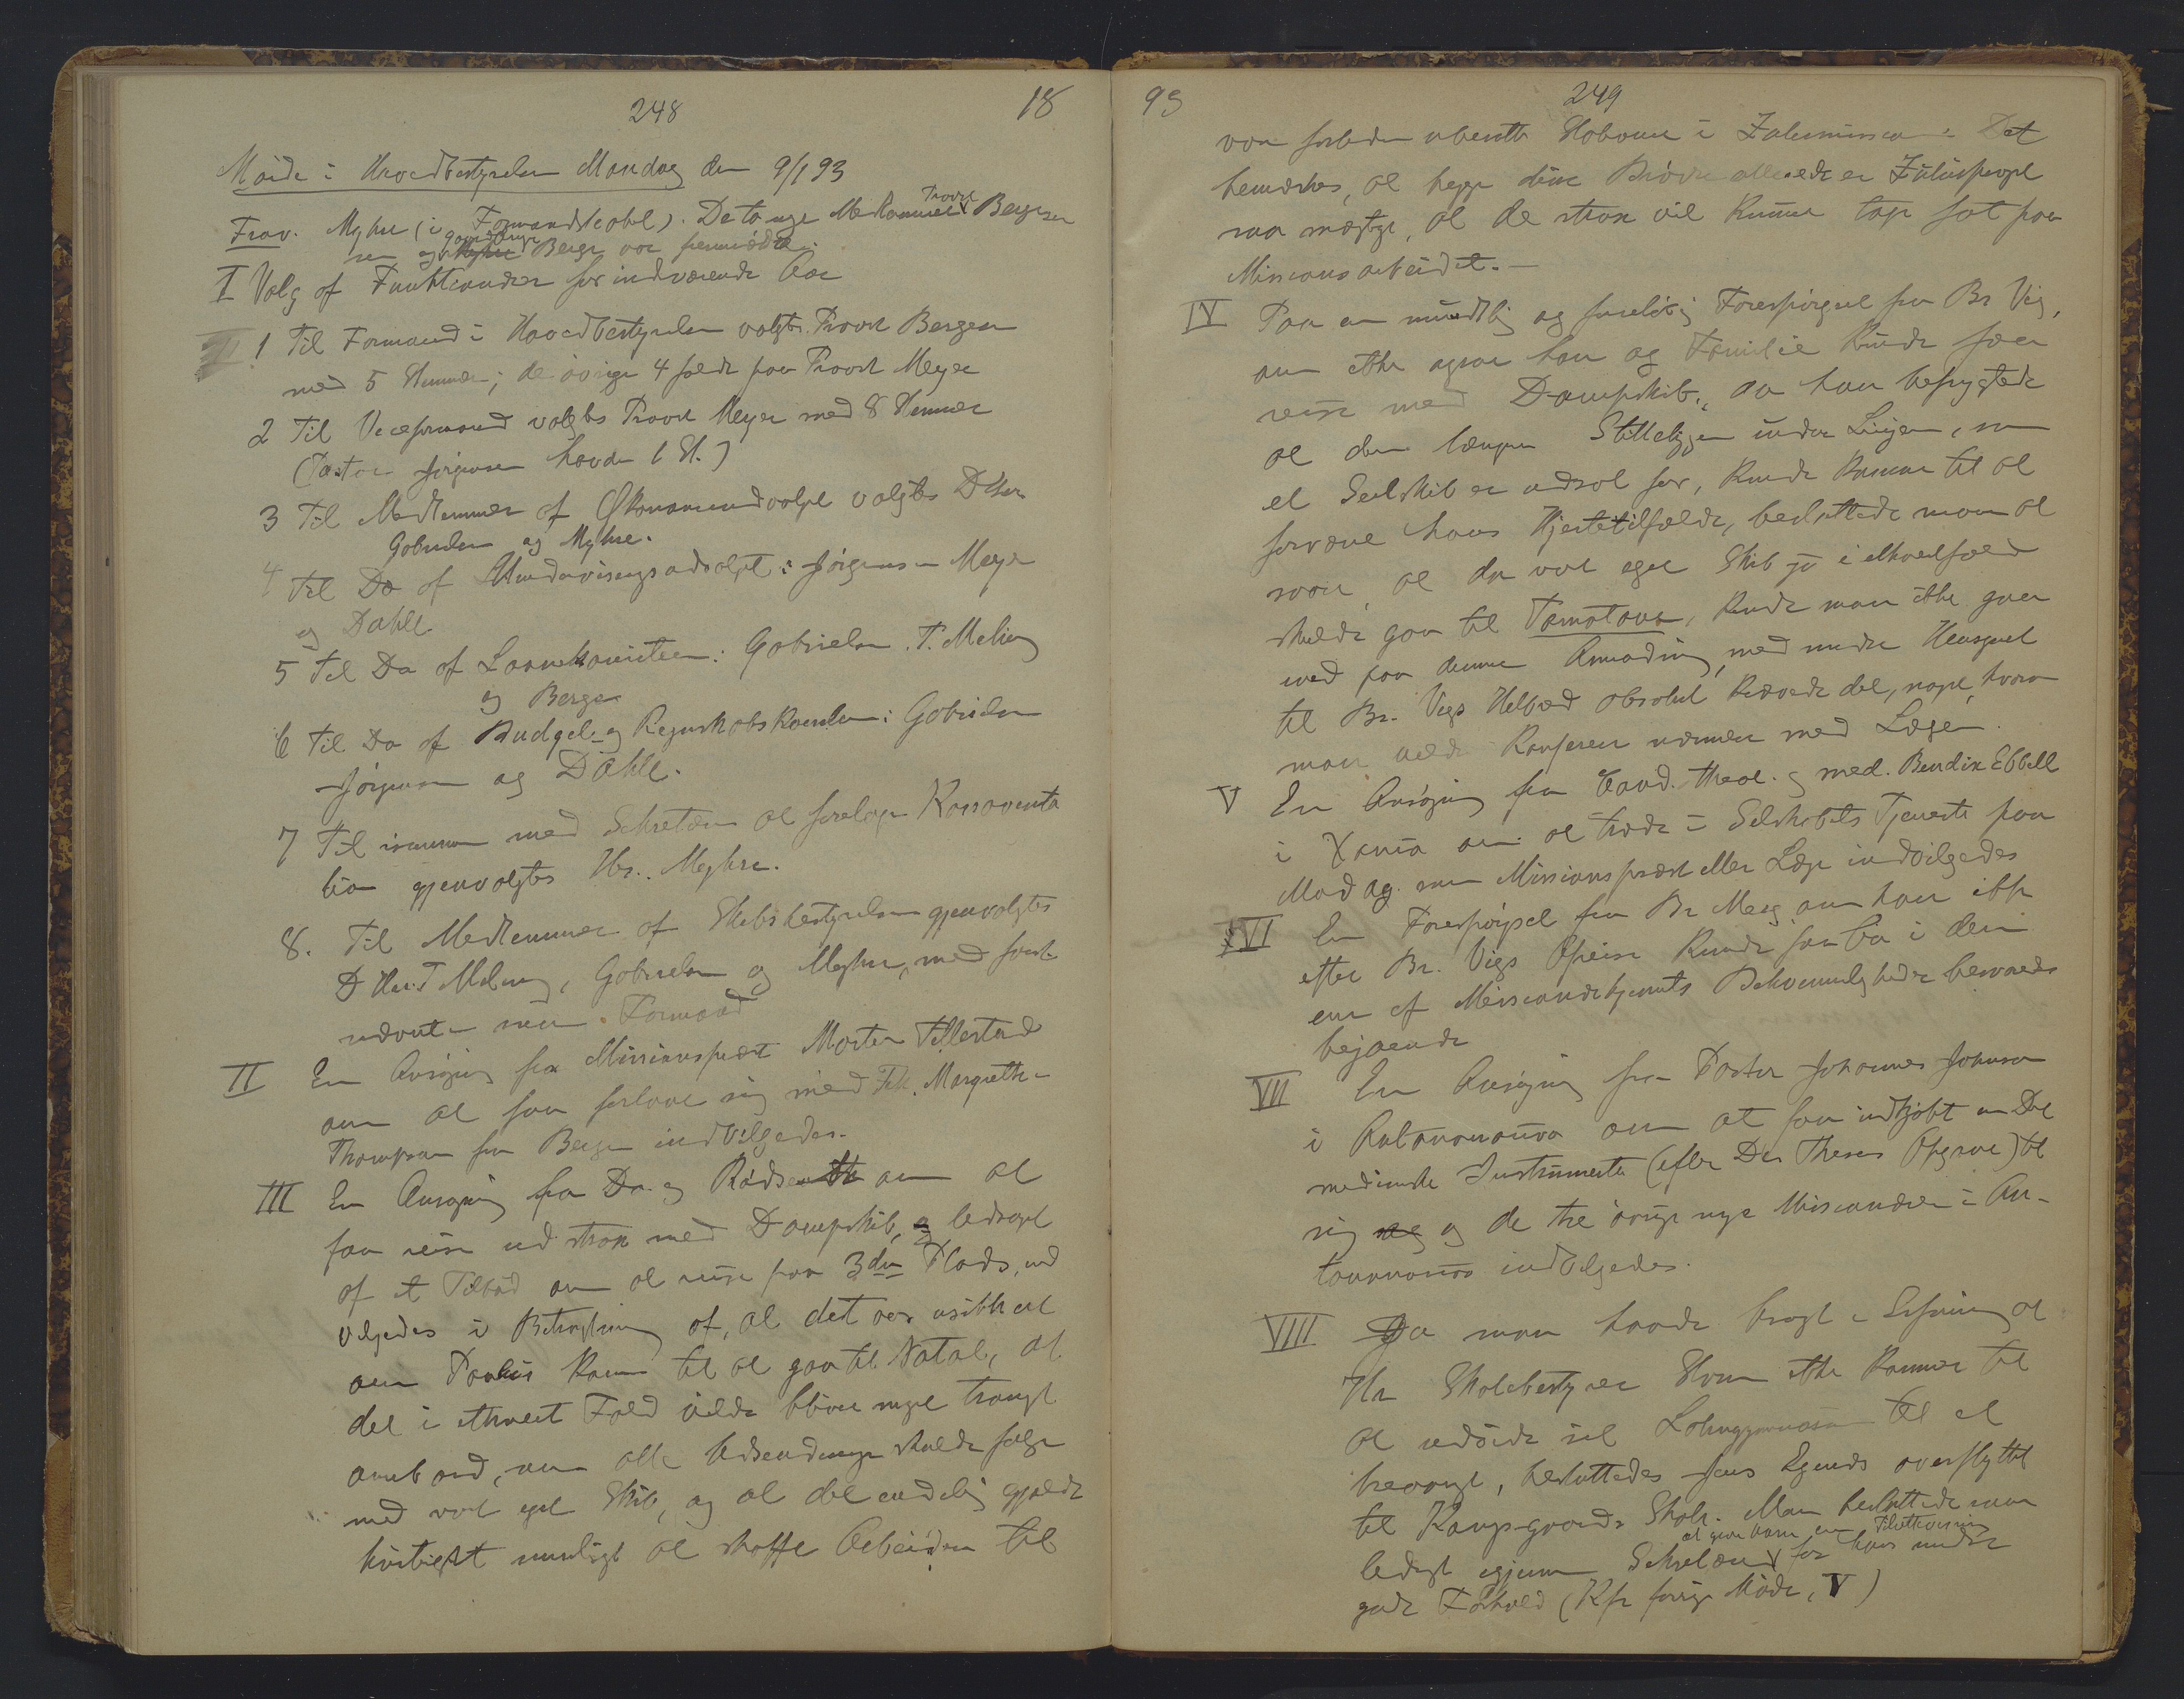 248
18
Møide i Hovedbestyrelsen Mandag den 9/1 93
Frav. Myhre (i Formandskabet). De to nye Medlemmer Provst Bergesen
og gaardbruger Berge var fremmødte.
I Valg af Funktionærer for indværende Aar
1 Til Formand i Hovedbestyrelsen valgtes Provst Bergesen
med 5 Stemmer; de øvrige 4 faldt paa Provst Meyer
2 Til Viceformand valgtes Provst Meyer med 8 Stemmer
(Pastor Jørgensen havde 1 St.)
3 Til Medlemmer af Økonomiudvalget valgtes DHer
Gabrielsen og Myhre.
4 Til Do af Undervisningsudvalget: Jørgensen Meyer
og Dahle.
5 Til Do af Laanekomiteen: Gabrielsen, T. Meling
og Berge
6 Til Do af Budget- og Regnskabskomiteen: Gabrielsen
Jørgensen og Dahle.
7 Til sammen med Sekretæren at foretage Kasseventa
tion gjenvalgtes Hr. Myhre.
8. Til Medlemmer af Skibsbestyrelsen gjenvalgtes
DHer. T Meling, Gabrielsen og Myhre, med først-
nævnte som Formand
II En Ansøgning fra Missionsprest Morten Tillestad
om at faa forlove sig med Frk. Margrethe
Thompson fra Bergen indvilgedes.
III En Ansøgning fra Do og Rødseth om at
faa reise ud strax med Dampskib, ledsaget
af et Tilbud om at reise paa 3die Plads, ind
vilgedes i Betragtning af, at det var usikkert
om Paulus kom til at gaa til Natal, at
det i ethvert Fald vilde blive meget trangt
ombord, om alle Udsendinge skulde følge
med vort eget Skib, og at det endelig gjaldt
hurtigst muligt at skaffe Arbeidere til
93
249
vor forladte ubesatte Stationer i Zulumissionen. Det
bemærkes, at begge disse Brødre allerede er Zulusproget
saa mægtige, at de strax vil kunne tage fat paa
Missionsarbeidet.—
IV Paa en mundtlig og foreløbig Forespørgsel fra Br Vig,
om ikke ogsaa han og Familie kunde faa
reise med Dampskib, da han befrygtede
at den længere Stilleliggen under Linjen, som
et Seilskib er udsat for, kunde komme til at
forværre hans Hjertetilfælde, besluttede man at
svare, at da vort eget Skib jo i ethvert fald
skulde gaa til Tamatave, kunde man ikke gaa
ind paa denne Anmodning, med mindre Hensynet
til Br. Vigs Helbred absolut krævede det, noget, hvorom
man vilde konferere nærmere med Lægen.
V En Ansøgning fra Cand. theol. og med. Bendix Ebbell
i Xania om at træde i Selskabets Tjeneste paa
Madag. som Missionsprest eller Læge indvilgedes
VI En Forespørgsel fra Br Meeg om han ikke
efter Br. Vigs Afreise kunde faa bo i den
ene af Missionshjemmets Bekvemmeligheder besvaredes
bejaende
VII En Ansøgning fra Pastor Johannes Johnson
i Antananarivo om at faa indkjøbt en Del
medicinske Instrumenter (efter Dr Thesens Opgave) til
sig og de tre øvrige nye Missionærer i An-
tananarivo indvilgedes.
VIII Da man havde bragt i Erfaring at
Hr Skolebestyrer Storm ikke kommer til
at udvide sit Latingymnasium til et
treaarigt, besluttedes hans Legends overflyttet
til Kongsgaards Skole. Man besluttede saa
ledes gjennem Sekretæren at give ham en Tilrettevisning for hans mindre
gode Forhold (Kfr forrige Møde, V)